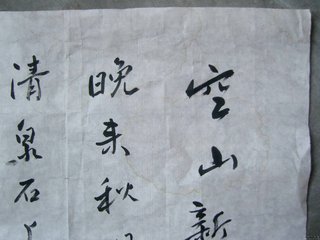 空山新
晚来秋
清泉石上